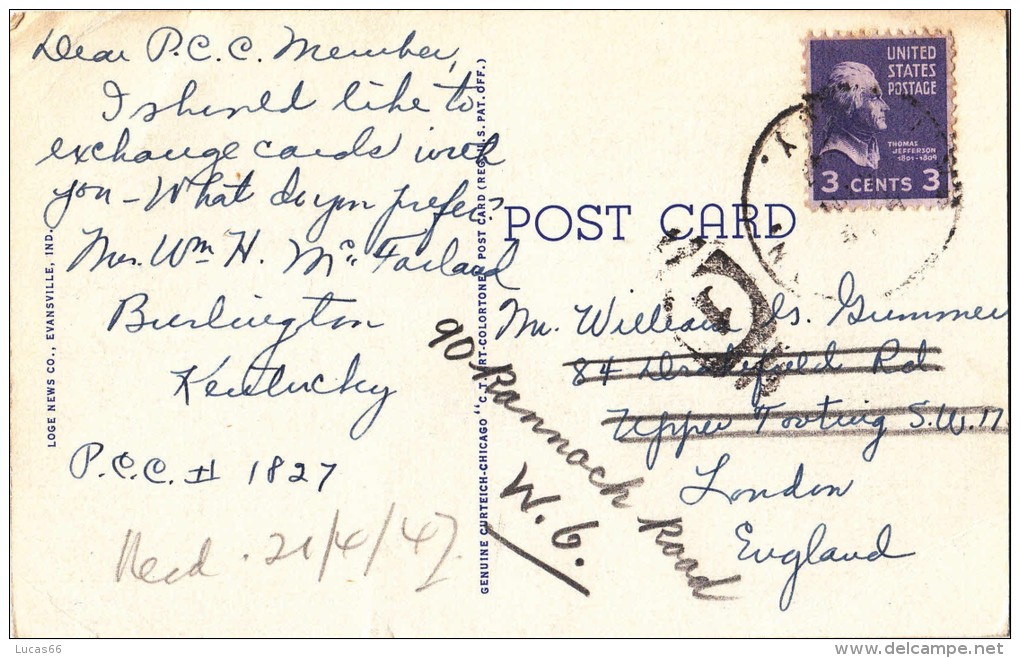 Dear P.C.C. Member,
I should like to
exchange cards with
you - What do you prefer.
Mrs. Wm H. McFarland
Burlington
Kentucky
P.C.C. # 1827
Recd. 21/4/47.
LOGE NEWS CO., EVANSVILLE, IND.
GENUINE CURTEICH-CHICAGO "C.T. ART-COLORTONE" POST CARD (REG. U.S. PAT. OFF.)
POST CARD
UNITED
STATES
POSTAGE
THOMAS
JEFFERSON
1801-1809
3 CENTS 3
Mr. William G. Gummer
84 Drakefield Rd
Upper Tooting S.W. 17
London
England
90 Rannoch Road
W.6.
Lucas66
www.delcampe.net